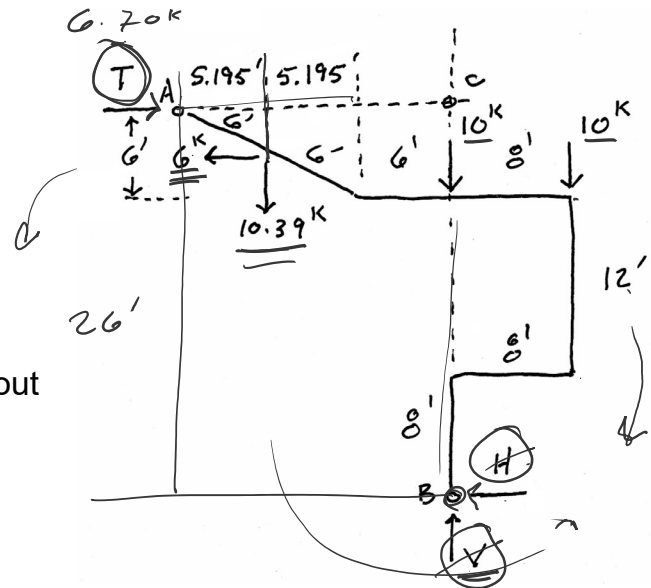 6.70K
T
A
5.195'
5.195'
C
6'
6'
6K
6'
6'
10K
8'
10K
10.39K
12'
26'
8'
out
8'
H
B
V